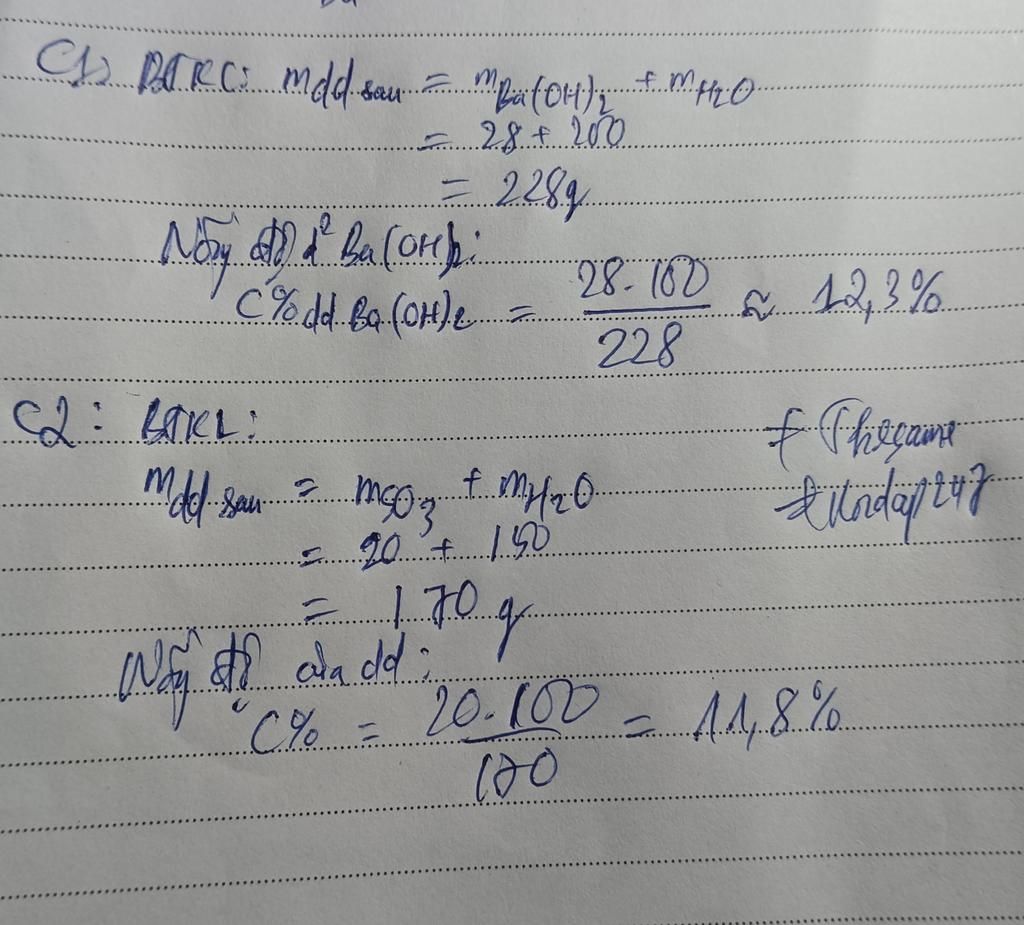 C1: BTKL: mdd sau = mBa(OH)2 + mH2O
= 28 + 200
= 228g
Nồng độ d² Ba(OH)2:
C% dd Ba(OH)2 = 28.100/228 ≈ 12,3%
C2: BTKL:
mdd sau = mSO3 + mH2O
= 20 + 150
= 170 g
Nồng độ của dd:
C% = 20.100/170 = 11,8%